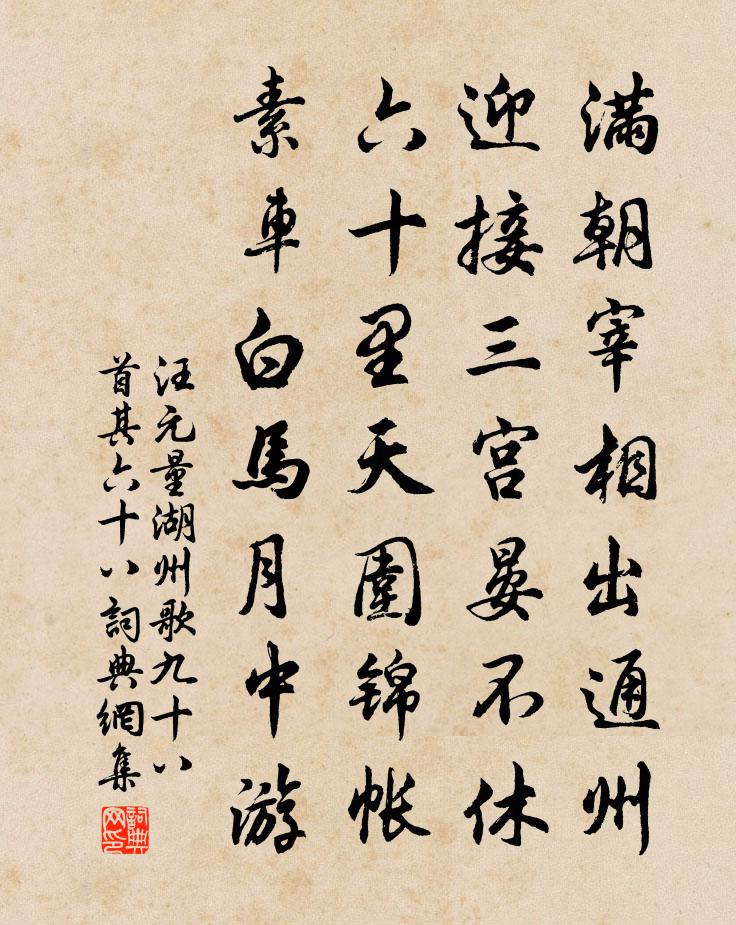 满朝宰相出通州
迎接三宫晏不休
六十里天围锦帐
素車白馬月中游
汪元量湖州歌九十八
首其六十八詞典網集
詞典网印